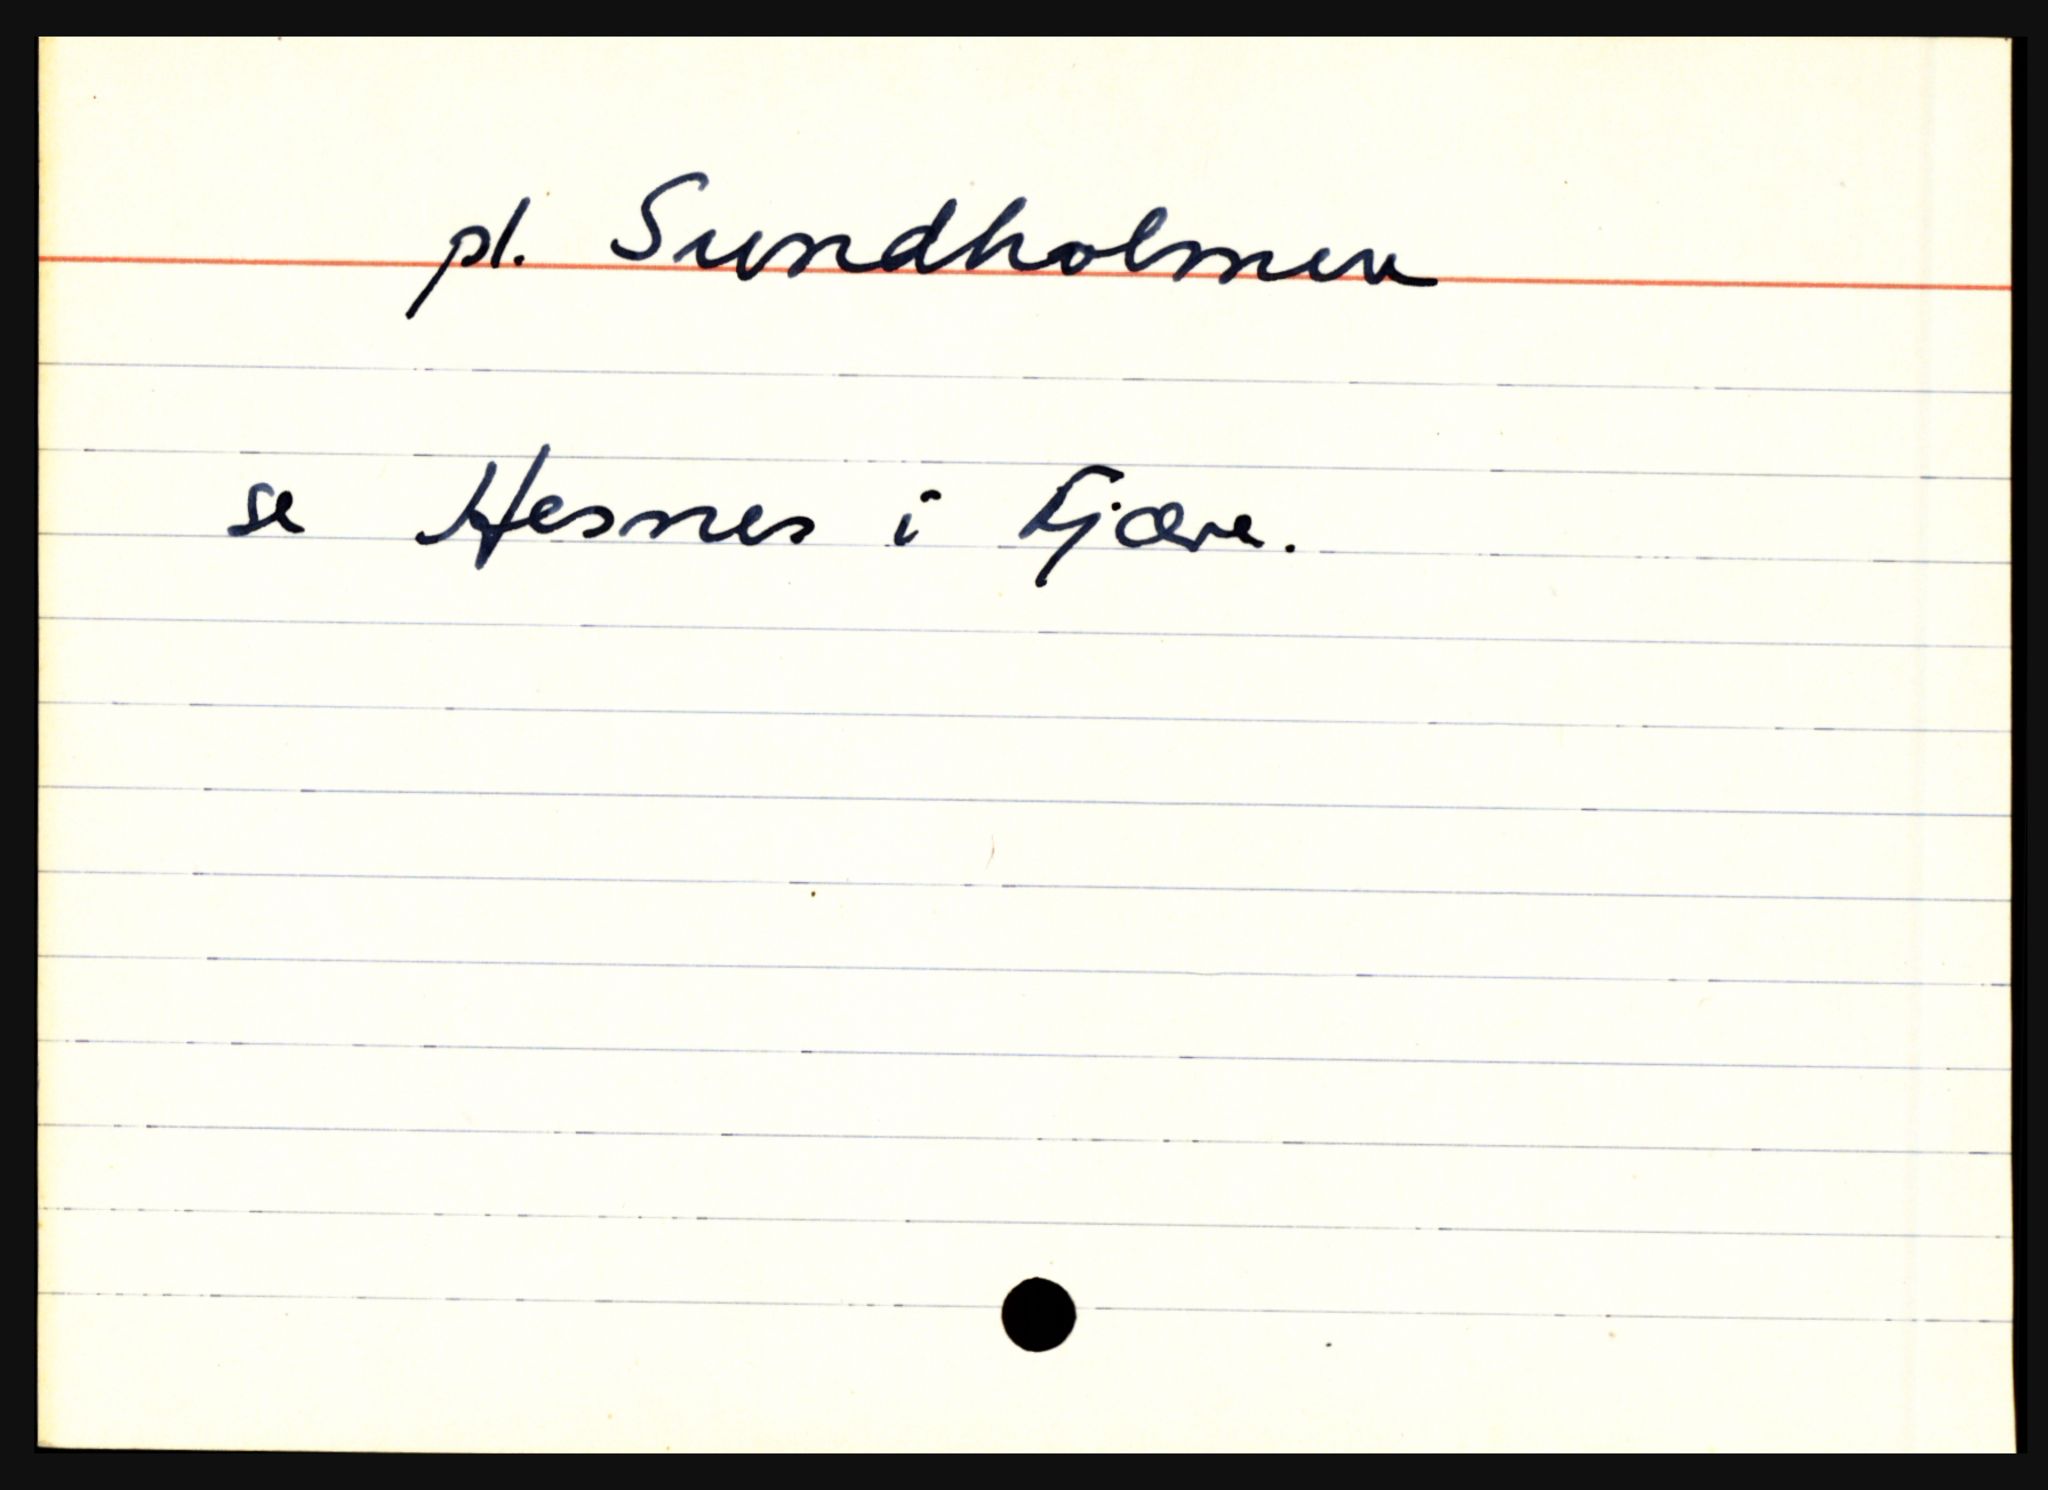 pl. Sundholmen
se Hesnes i Fjære.